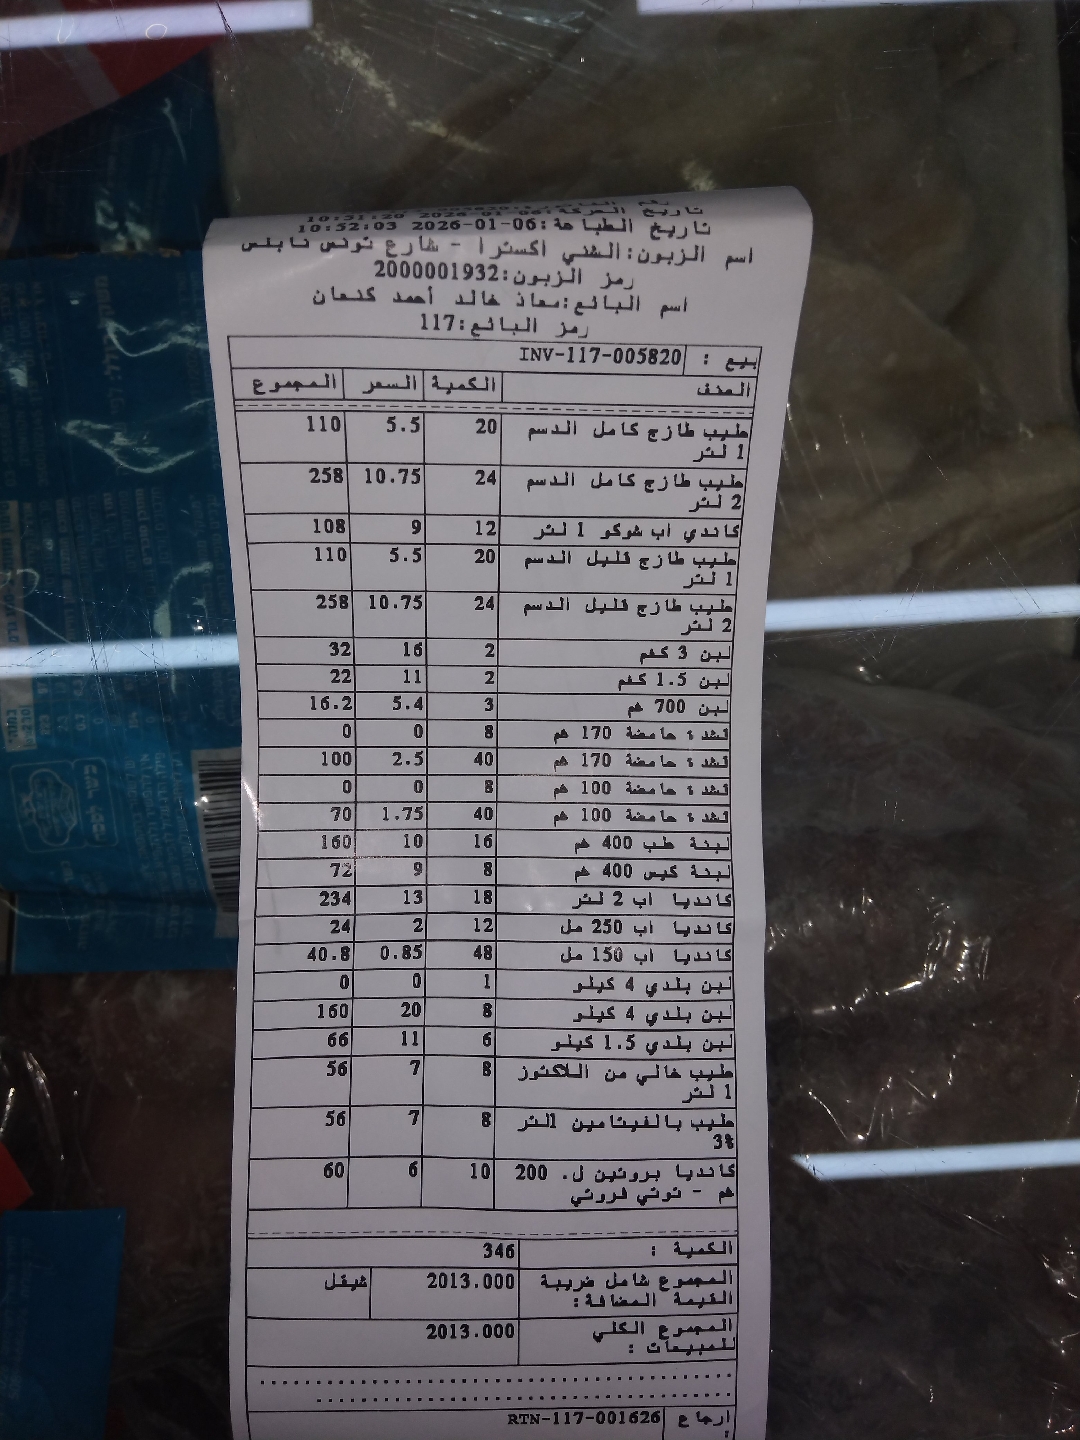 تاريخ الحركة: 2026-01-06 10:51:20
تاريخ الطباعة: 2026-01-06 10:52:03
اسم الزبون: الشني اكسترا - شارع تونس نابلس
رمز الزبون: 2000001932
اسم البائع: معاذ خالد أحمد كنعان
رمز البائع: 117
بيع : INV-117-005820
الصنف الكمية السعر المجموع
حليب طازج كامل الدسم 20 5.5 110
1 لتر
حليب طازج كامل الدسم 24 10.75 258
2 لتر
كاندي اب شوكو 1 لتر 12 9 108
حليب طازج قليل الدسم 20 5.5 110
1 لتر
حليب طازج قليل الدسم 24 10.75 258
2 لتر
لبن 3 كغم 2 16 32
لبن 1.5 كغم 2 11 22
لبن 700 غم 3 5.4 16.2
قشدة حامضة 170 غم 8 0 0
قشدة حامضة 170 غم 40 2.5 100
قشدة حامضة 100 غم 8 0 0
قشدة حامضة 100 غم 40 1.75 70
لبنة علب 400 غم 16 10 160
لبنة كيس 400 غم 8 9 72
كانديا اب 2 لتر 18 13 234
كانديا اب 250 مل 12 2 24
كانديا اب 150 مل 48 0.85 40.8
لبن بلدي 4 كيلو 1 0 0
لبن بلدي 4 كيلو 8 20 160
لبن بلدي 1.5 كيلو 6 11 66
حليب خالي من اللاكتوز 8 7 56
1 لتر
حليب بالفيتامين 1لتر 8 7 56
3%
كانديا بروتين ل. 200 10 6 60
غم - توتي فروتي
الكمية : 346
المجموع شامل ضريبة 2013.000 شيقل
القيمة المضافة:
المجموع الكلي 2013.000
للمبيعات :
ارجاع RTN-117-001626
: